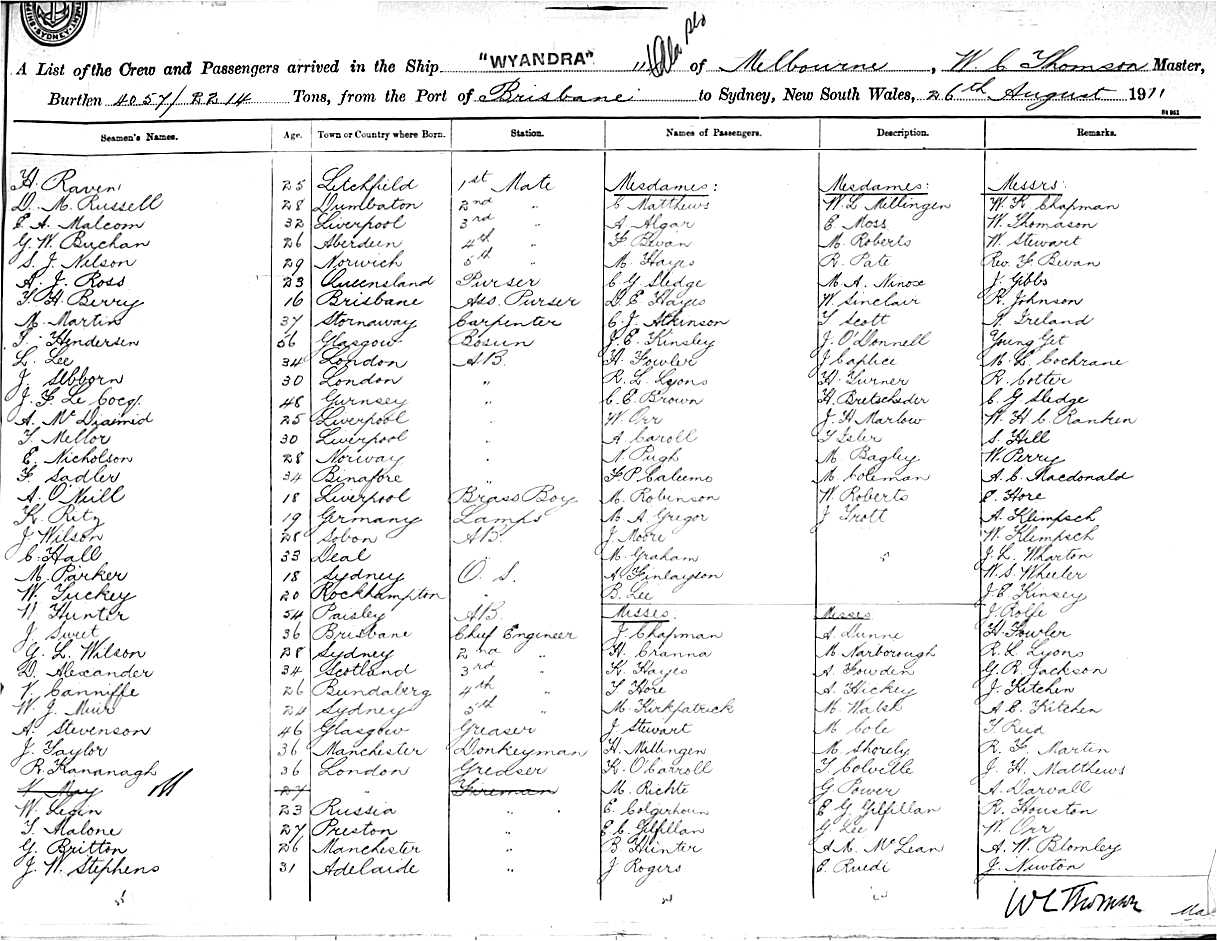 SYDNEY
A List of the Crew and Passengers arrived in the Ship "WYANDRA" of Melbourne, W. C Thomson Master,
Burthen 4057/2214 Tons, from the Port of Brisbane to Sydney, New South Wales, 26th August 1911
Seamen's Names. Age. Town or Country where Born. Station. Names of Passengers. Description. Remarks.
H. Raven 25 Litchfield 1st Mate Mesdames: Mesdames: Messrs:
D. M. Russell 28 Dumbaton 2nd " C Matthews W. L Millingen W. K Chapman
E A. Malcom 32 Liverpool 3rd " A Algar E Moss W. Thomason
G. W. Buchan 26 Aberdeen 4th " F Bevan M. Roberts W. Stewart
S. J. Nilson 29 Norwich 5th " M. Hayes R. Pate Rev. F Bevan
A. J. Ross 23 Queensland Purser C G Sledge M. A. J. Gibbs
T. H. Berry 16 Brisbane Ass. Purser D E Hayes W. Sinclair R. Johnson
M. Martin 37 Stornaway Carpenter C. J. Atkinson T Scott A. Ireland
T. Hindersen 56 Glasgow Bosun J. E. Kinsley J. O'Donnell Young Get
L. Lee 34 London A.B. H Fowler J Caplice M. L Cochrane
J. Stbborn 30 London " R. L. Lyons H. Turner R. Cotter
J. F. Le Cocq. 48 Gurnsey " C. E. Brown H. Bretscheder C G Sledge
A. Mc Diamid 25 Liverpool " W. Orr J. H Marlow W. H C. Ranken
T. Mellor 30 Liverpool " A Caroll T Isler S. Hill
E. Nicholson 28 Norway " N Pugh M Bagley W Perry
F. Sadler 34 Binafore " F P Caleemo M. Coleman A. C. Macdonald
A. O'Neill 18 Liverpool Brass Boy M. Robinson W. Roberts E. Hore
K. Ritz 19 Germany Lamps M A Gregor J Trott A. Klimpsch
J. Wilson 28 Sobon A.B. J. Moore W. Klimpsch
C. Hall 33 Deal M. Graham J. L. Wharton
M. Parker 18 Sydney O. S. A Finlayson W. S. Wheeler
W. Tuckey 20 Rockhampton " B. Lee J. E Kinsey
W Hunter 54 Paisley A.B. Misses: Misses J. Rolfe
J. Swet 36 Brisbane Chief Engineer J. Chapman A Dunne H. Fowler
G. L. Wilson 28 Sydney 2nd " H. Cranna M Narborough R. L Lyons
D. Alexander 34 Scotland 3rd " K. Hayes A Fowden G. R. Jackson
V. Canniffe 26 Bundaberg 4th " T Hore A. Hickey J. Kitchen
W. J. Muir 24 Sydney 5th " M. Kirkpatrick M. Walsh A E. Kitchen
A. Stevenson 46 Glasgow Greaser J Stewart M Cole T. Reid
J. Taylor 36 Manchester Donkeyman H. Millingen M. Shorely R. F. Martin
R. Kananagh 36 London Greaser K. O'Carroll T Colville J. H. Matthews
May 27 " Fireman M. Richte G Power A. Darvall
W. Legin 23 Russia " E. Colquhoun E G Gilfillan R. Houston
T. Malone 27 Preston " E C Gilfillan G Lee W. Orr
G. Britton 26 Manchester " B Hunter A. M. McLean A. W. Blomley
J. W. Stephens 31 Adelaide " J Rogers E. Ruedi J. Newton
W C Thomson